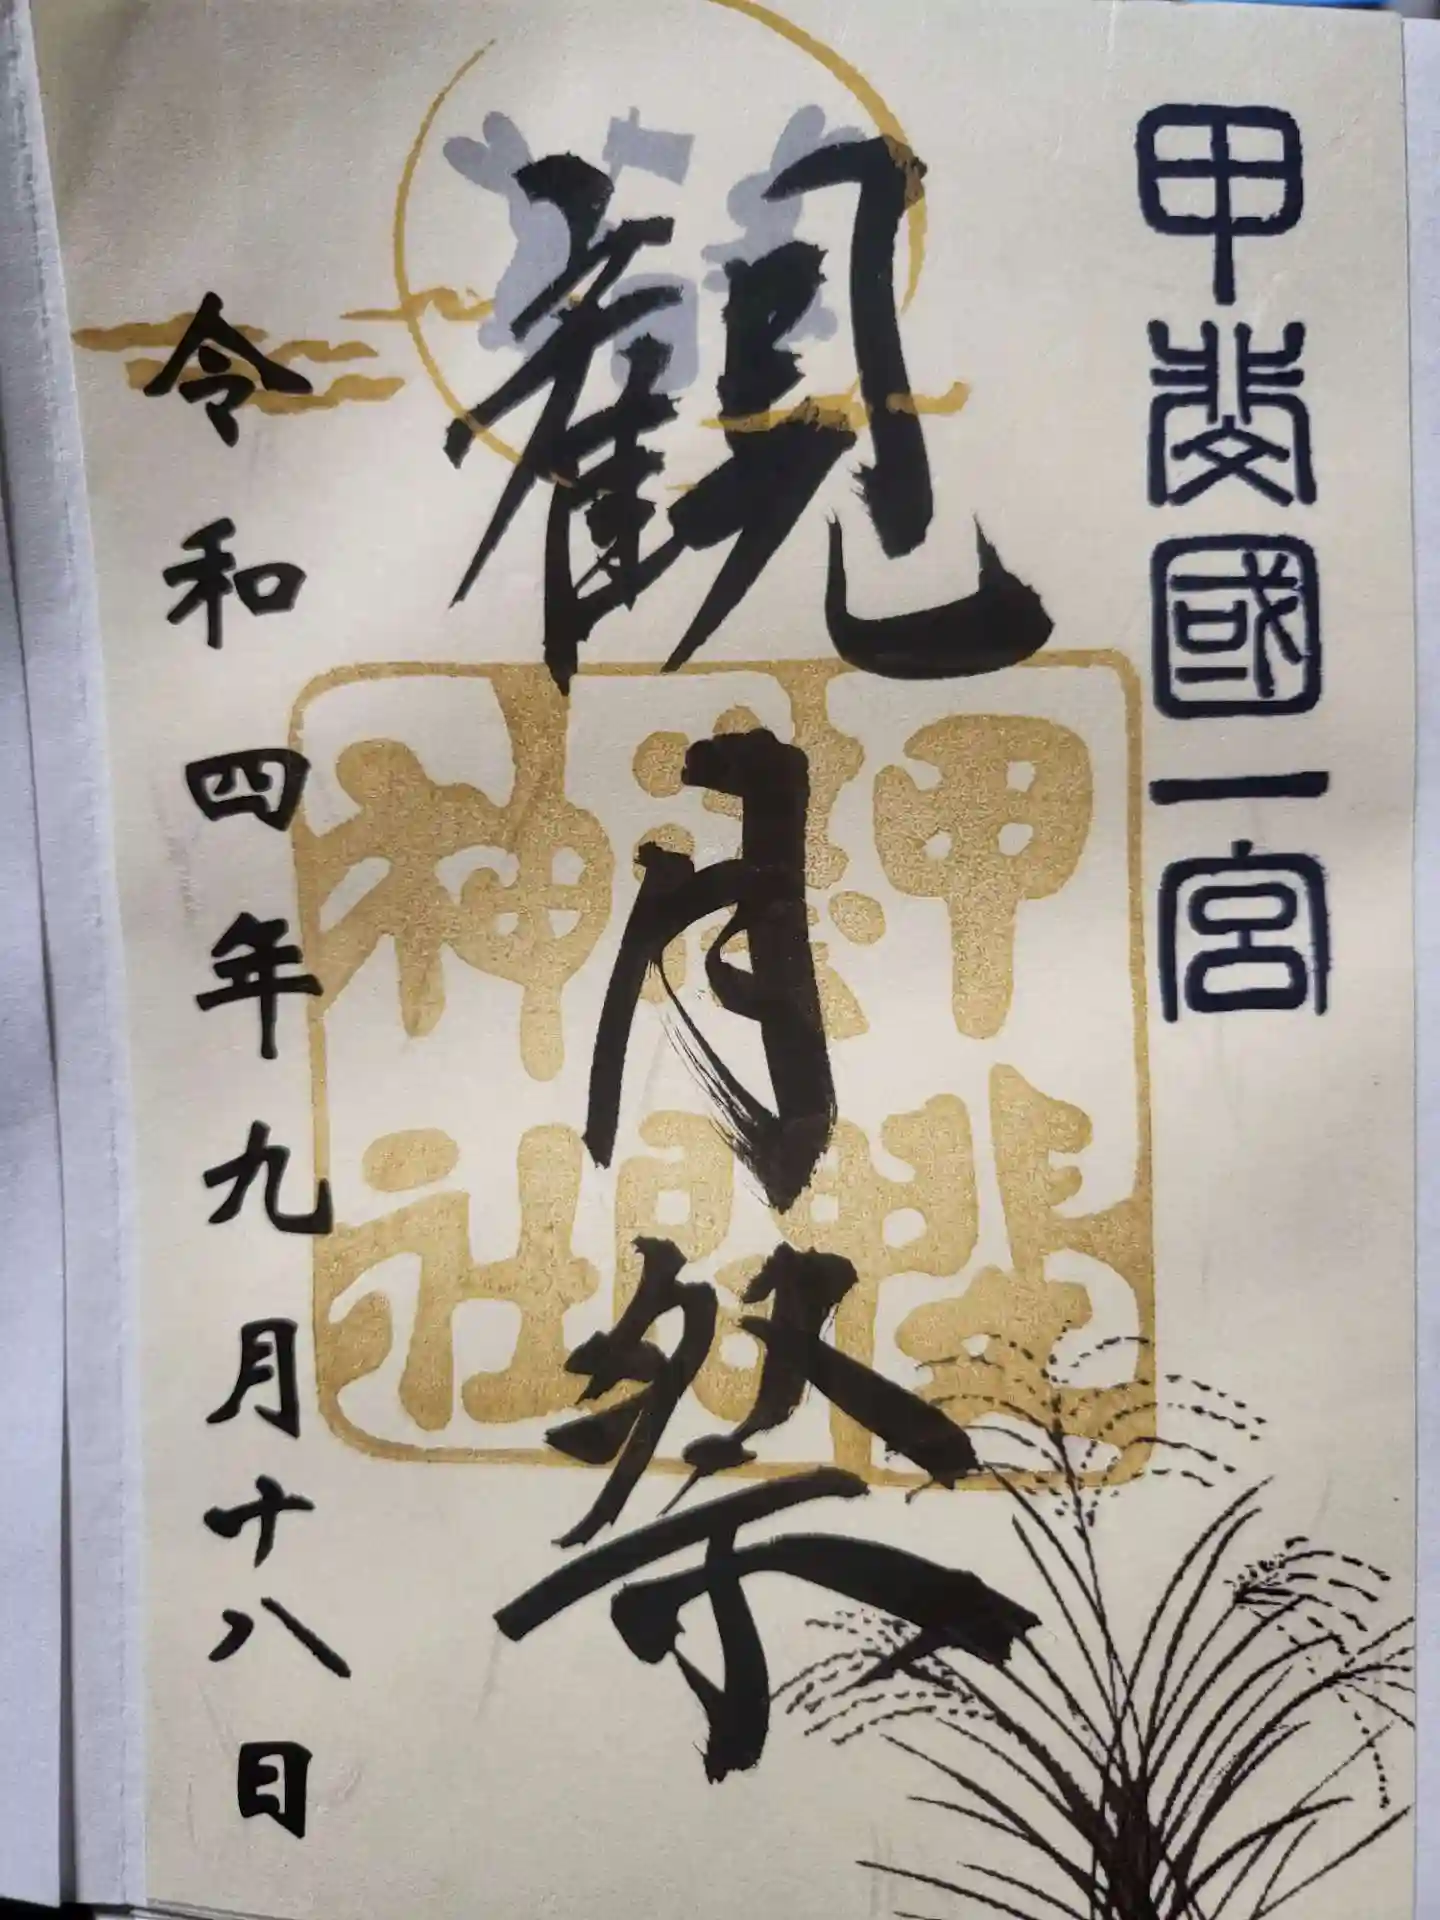 甲斐國一宮
觀月祭
甲斐國
淺間
神社
令和四年九月十八日